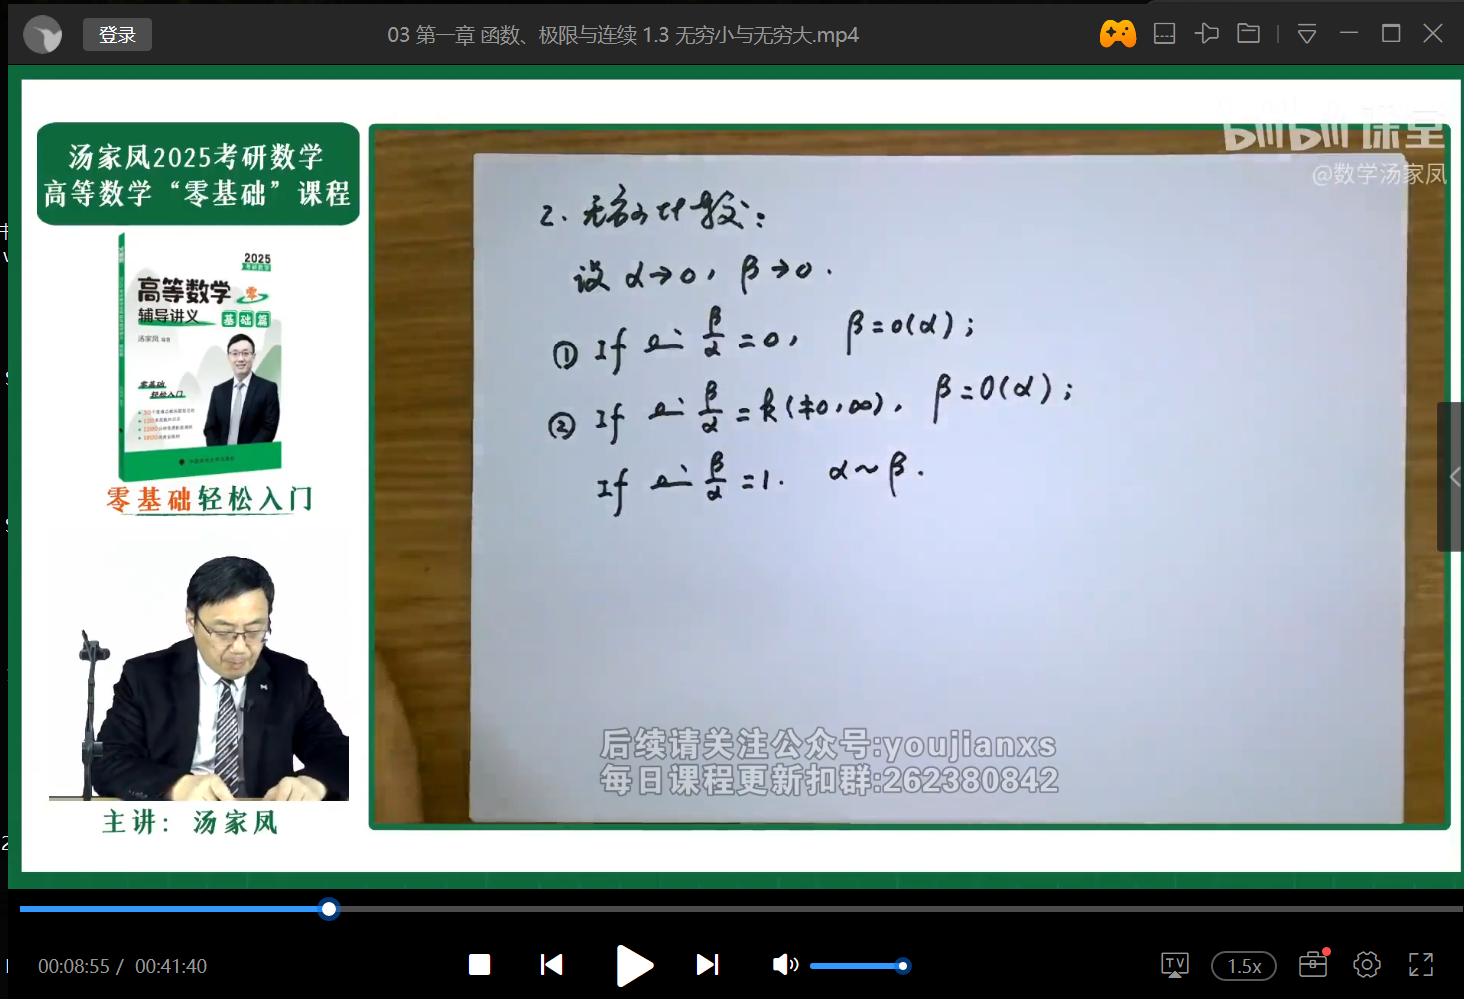 登录
03 第一章 函数、极限与连续 1.3 无穷小与无穷大.mp4
汤家凤2025考研数学
高等数学“零基础”课程
2025
高等数学 零
辅导讲义 基础篇
汤家凤
零基础
轻松入门
零基础轻松入门
主讲：汤家凤
bilibili 课堂
@数学汤家凤
2. 无穷小比较:
设 α→0, β→0.
① If lim β/α = 0, β=o(α);
② If lim β/α = k(≠0,∞), β=O(α);
If lim β/α = 1. α~β.
后续请关注公众号:youjianxs
每日课程更新扣群:262380842
00:08:55 / 00:41:40
TV
1.5x